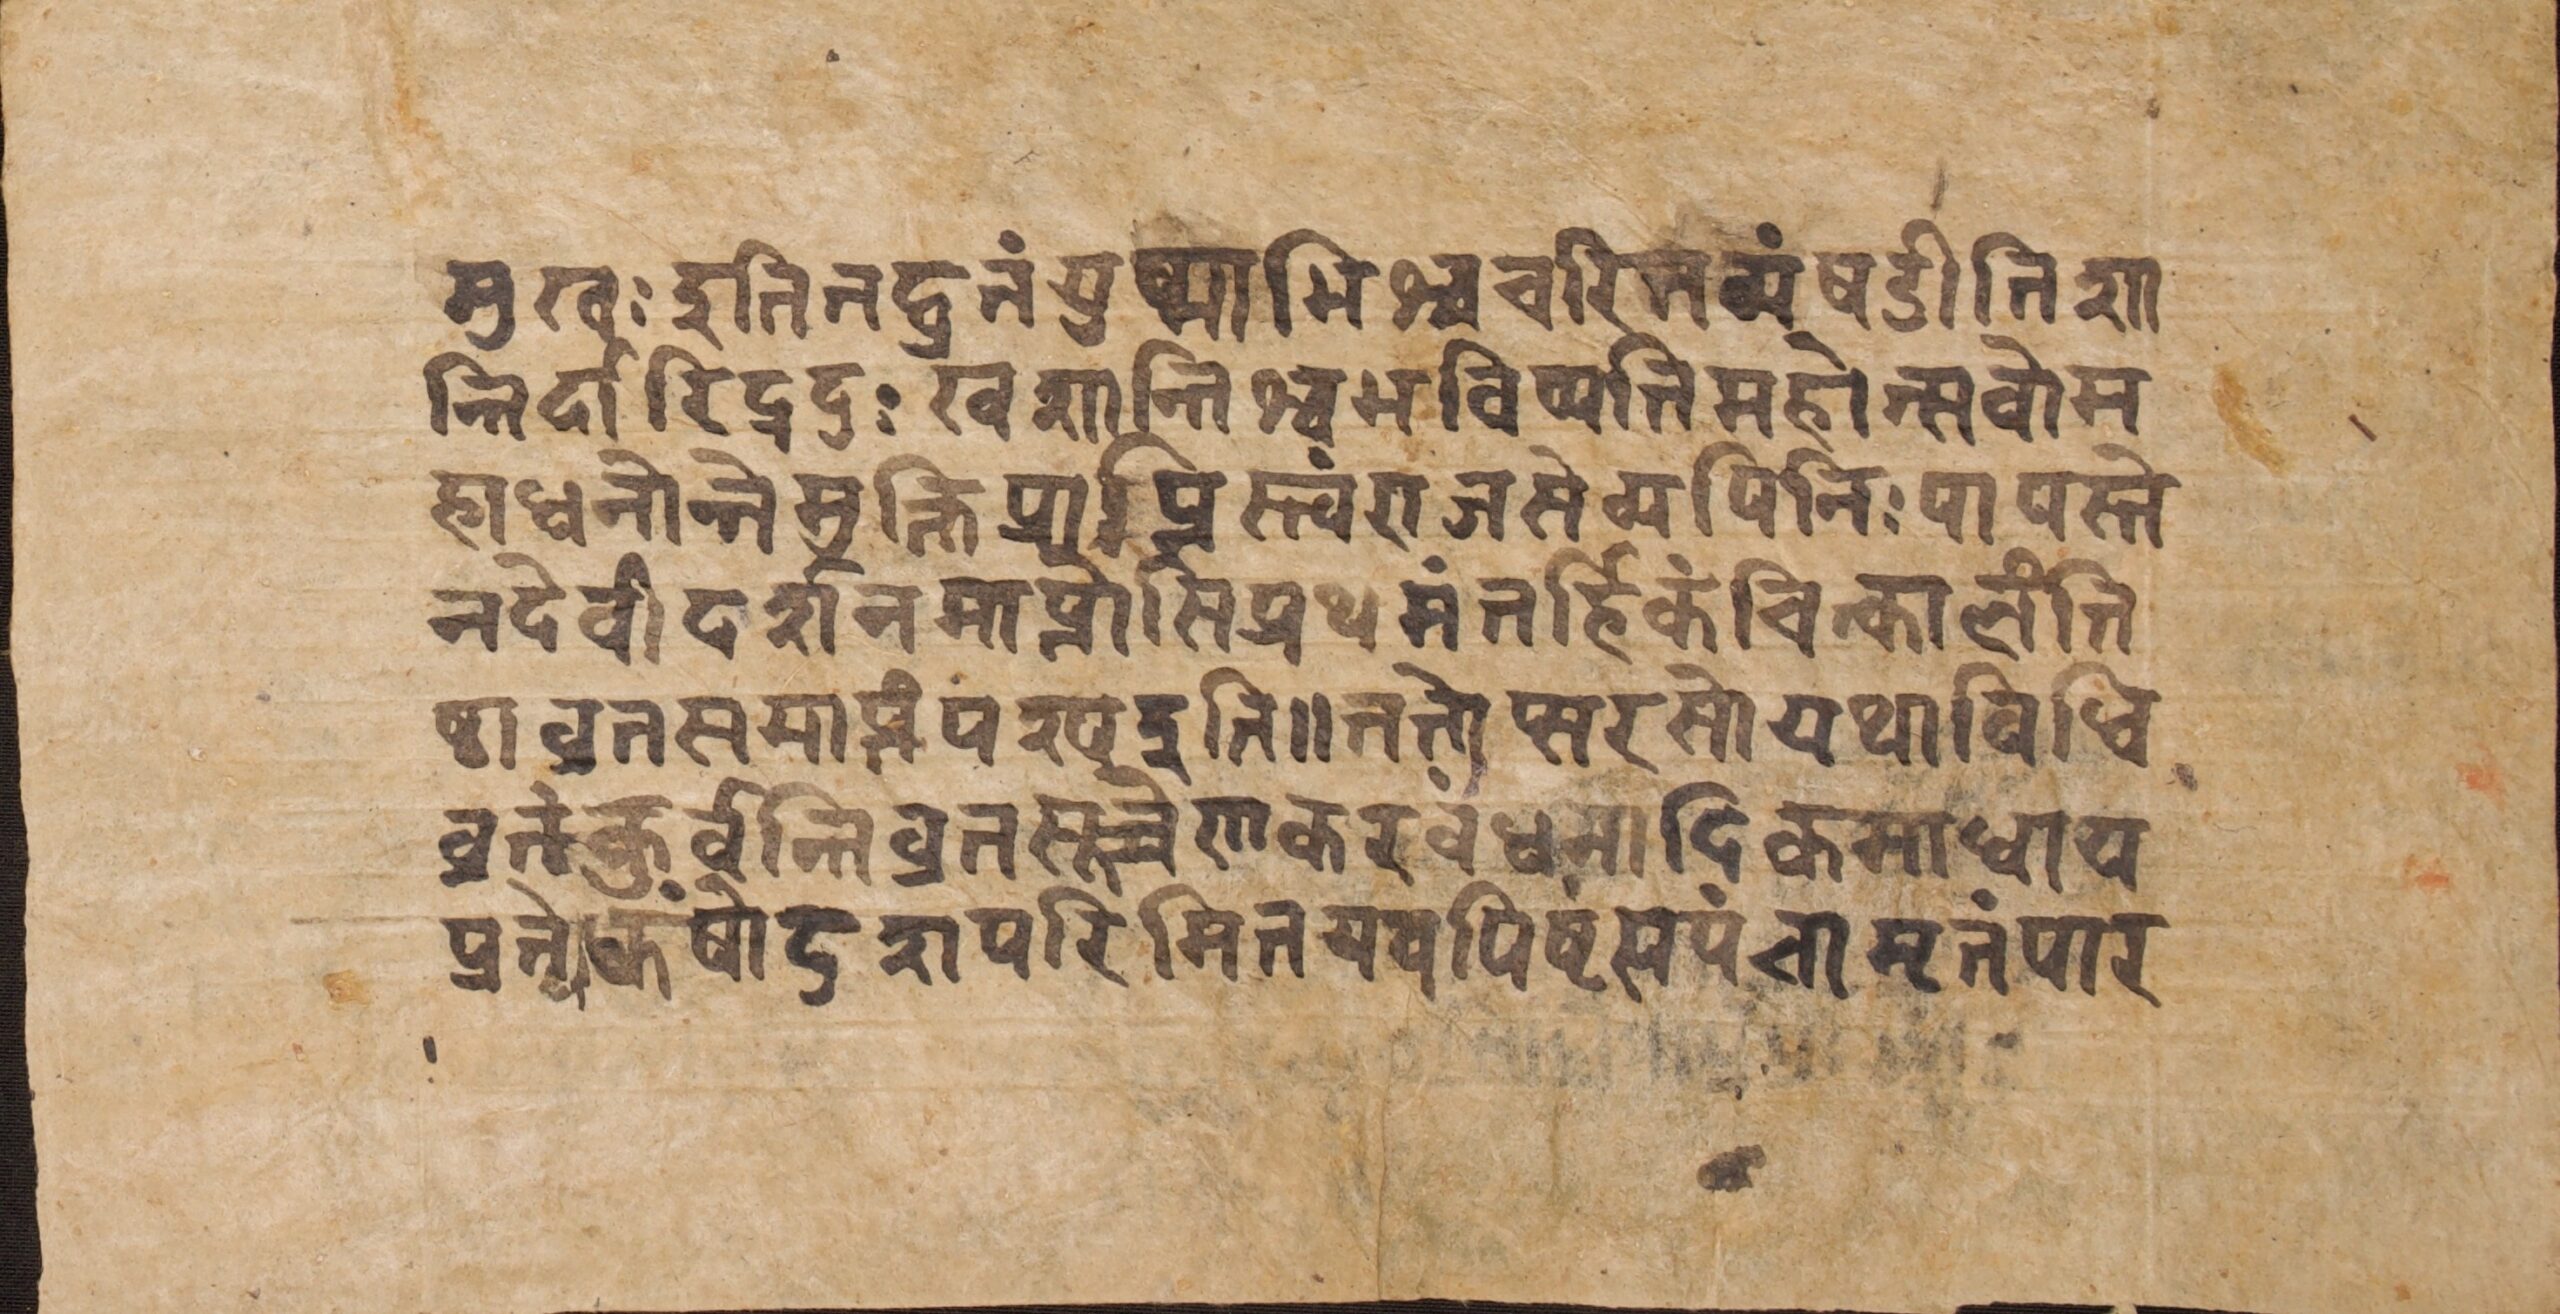 मुखः इति तद्व्रतं युष्माभिश्च चरितव्यं षडीतिशा
न्तिर्दारिद्रदुःखशान्तिश्च भविष्यति महोत्सवोम
हाध्वनोन्ते मुक्तिप्राप्तिस्त्वं राजसेव्यपि निःपापस्ते
न देवीदर्शनमाप्नोसि प्रथमं तर्हि कंचित्कालं ति
ष्ठा व्रतसमाप्तिं पश्य इति॥ ततो प्सरसो यथाविधि
व्रतं कुर्वन्ति व्रतसूत्रेण करबंधनादिकमाधाय
प्रत्येकं षोदशपरिमितयवपिष्टं सपंचामृतं पार